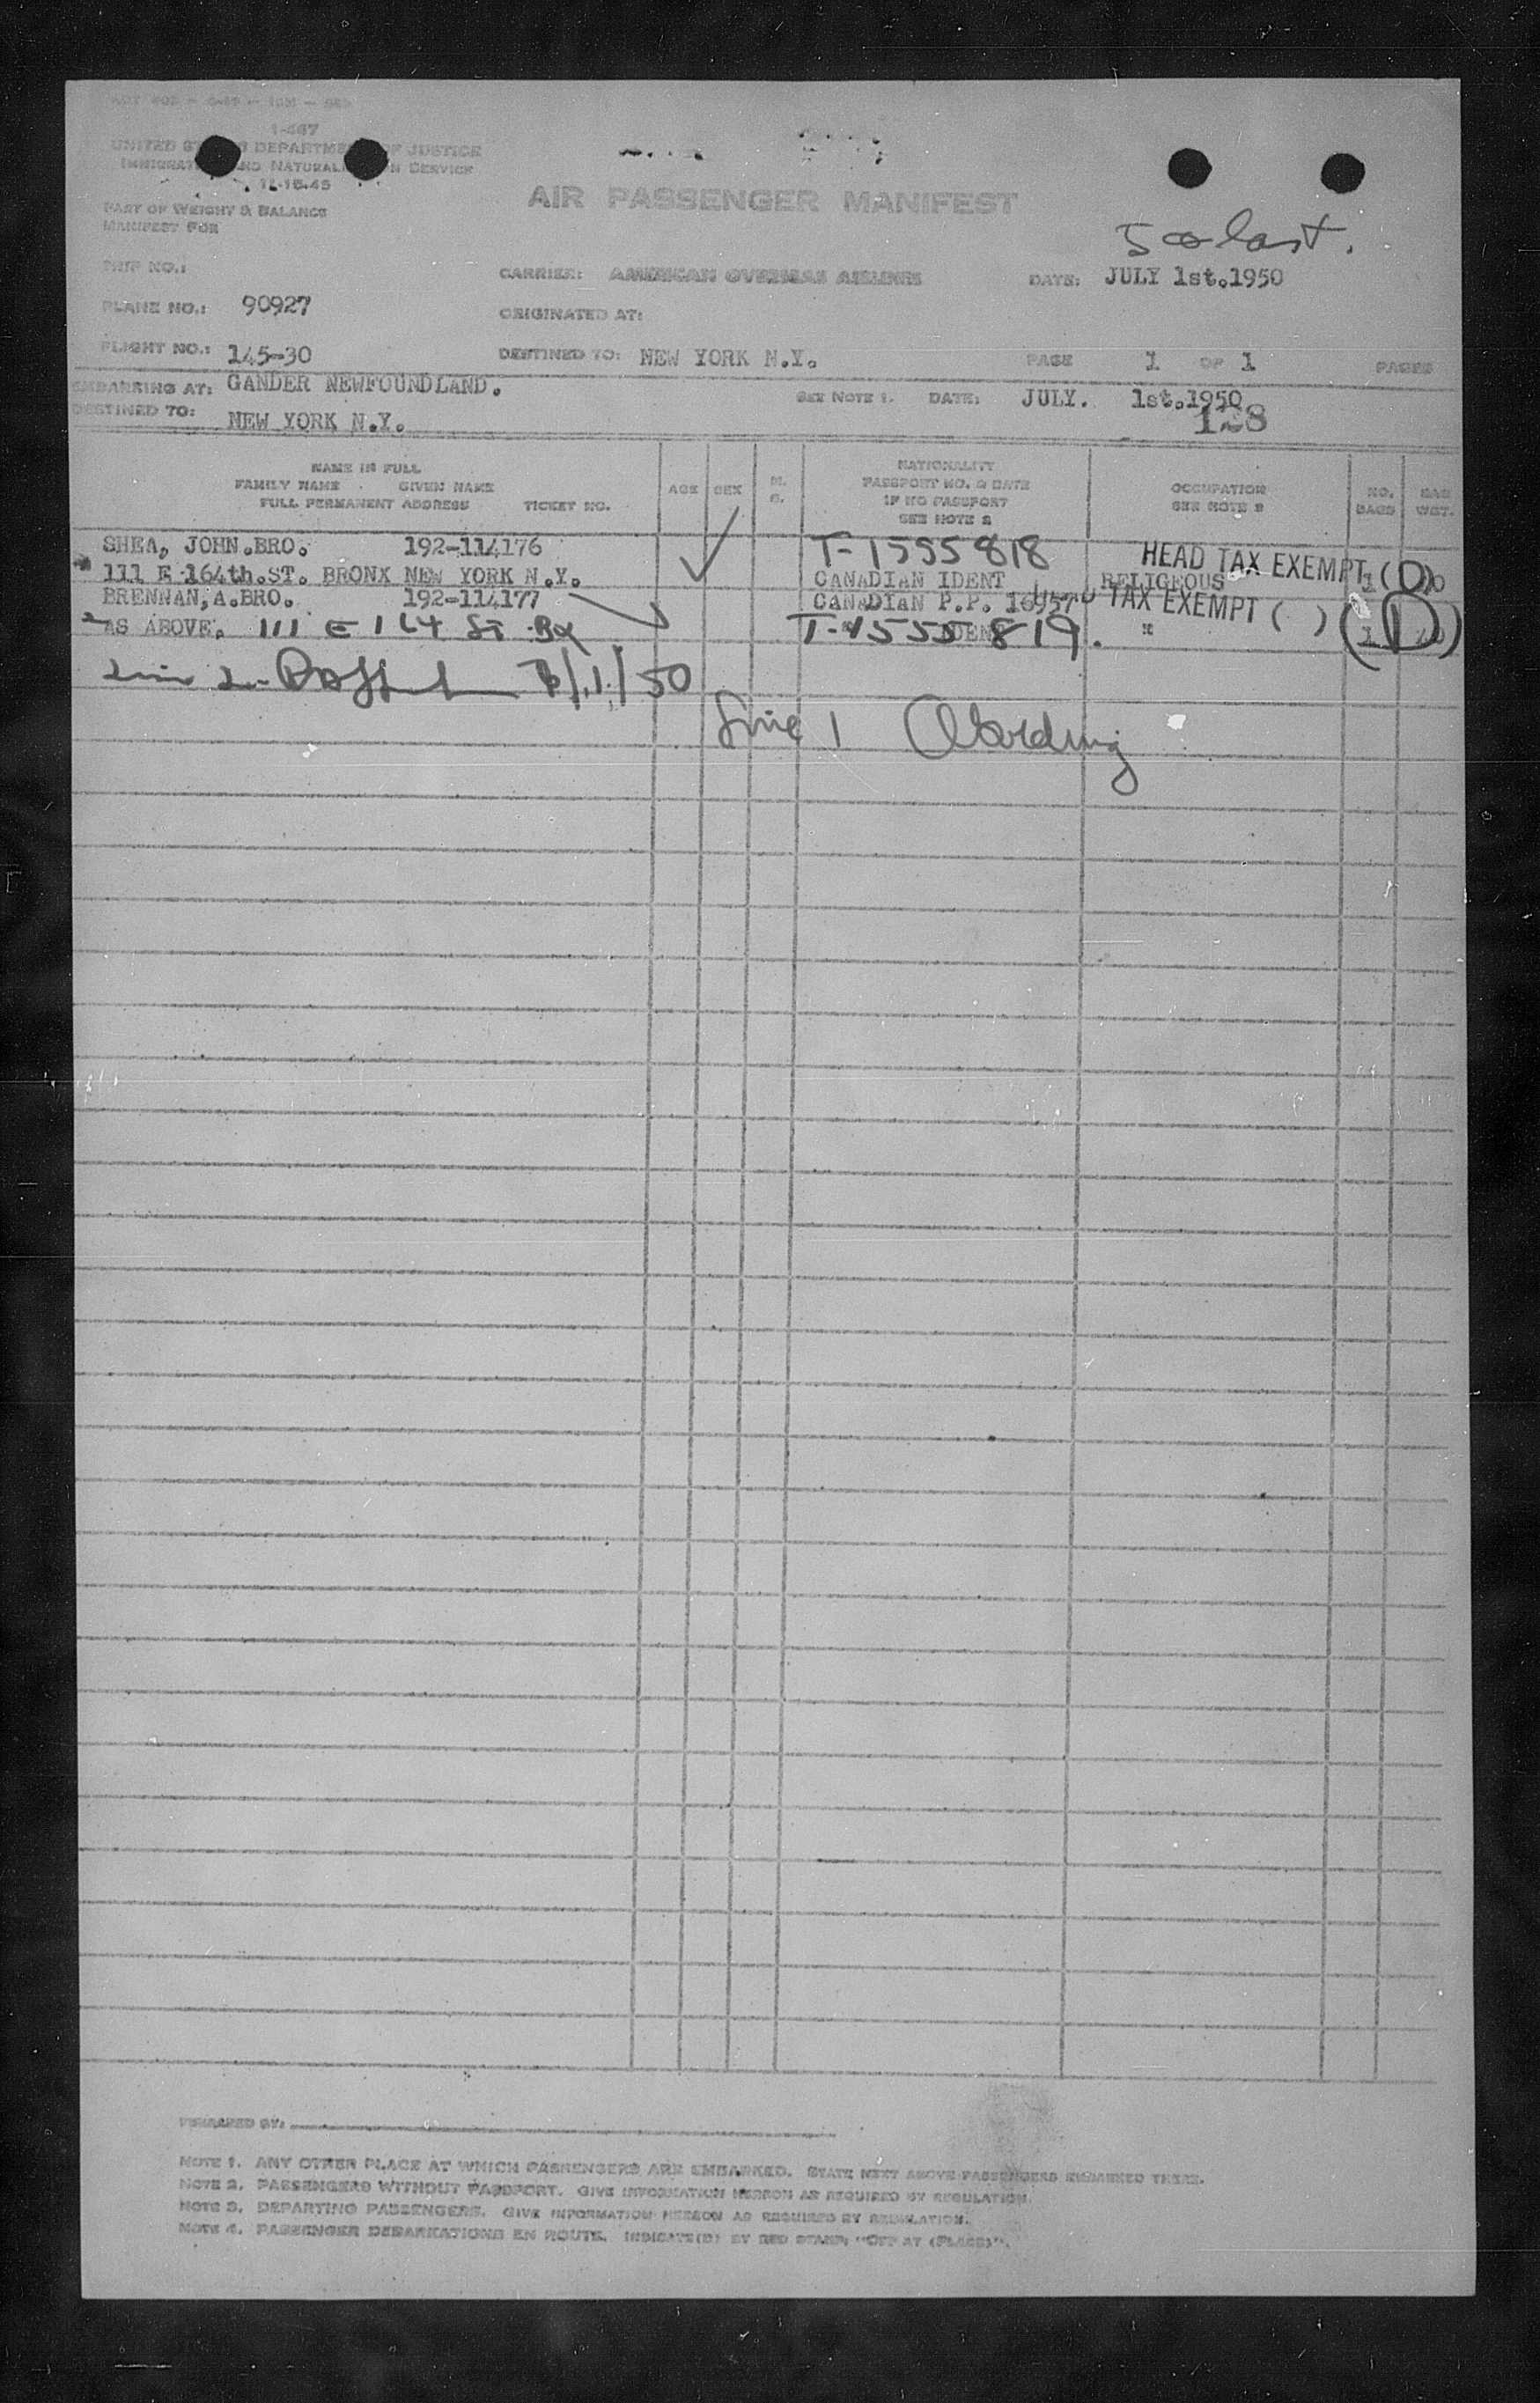 I-467
UNITED STATES DEPARTMENT OF JUSTICE
IMMIGRATION AND NATURALIZATION SERVICE
11-15-45
PART OF WEIGHT & BALANCE
MANIFEST FOR
AIR PASSENGER MANIFEST
TRIP NO.:
CARRIER: AMERICAN OVERSEAS AIRLINES
DATE: JULY 1st.1950
PLANE NO.: 90927
ORIGINATED AT:
FLIGHT NO.: 145-30
DESTINED TO: NEW YORK N.Y.
PAGE 1 OF 1 PAGES
EMBARKING AT: GANDER NEWFOUNDLAND.
SEE NOTE 1. DATE: JULY. 1st.1950
DESTINED TO: NEW YORK N.Y.
128
NAME IN FULL
FAMILY NAME GIVEN NAME
FULL PERMANENT ADDRESS TICKET NO.
AGE
SEX
M.
S.
NATIONALITY
PASSPORT NO. & DATE
IF NO PASSPORT
SEE NOTE 2
OCCUPATION
SEE NOTE 2
NO.
BAGS
BAG
WGT.
SHEA, JOHN.BRO. 192-114176 T-1555818 HEAD TAX EXEMPT (D)
111 E 164th.ST. BRONX NEW YORK N.Y. CANADIAN IDENT RELIGEOUS 1
BRENNAN,A.BRO. 192-114177 CANADIAN P.P. 16957 TAX EXEMPT ( ) (D)
AS ABOVE. 111 E 164 St Bx T-1555819. " 1
7/1/50
Line 1
PREPARED BY:
NOTE 1. ANY OTHER PLACE AT WHICH PASSENGERS ARE EMBARKED. STATE NEXT ABOVE PASSENGERS EMBARKED THERE.
NOTE 2. PASSENGERS WITHOUT PASSPORT. GIVE INFORMATION HEREON AS REQUIRED BY REGULATION.
NOTE 3. DEPARTING PASSENGERS. GIVE INFORMATION HEREON AS REQUIRED BY REGULATION.
NOTE 4. PASSENGER DEBARKATIONS EN ROUTE. INDICATE(D) BY RED STAMP: "OFF AT (PLACE)".